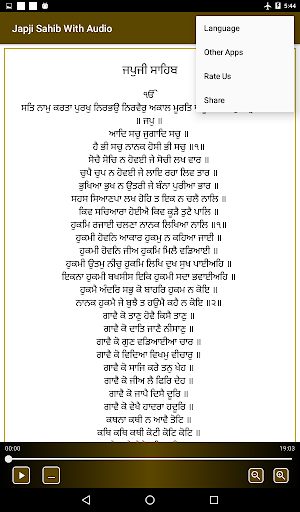 5:44
Japji Sahib With Audio
Language
Other Apps
Rate Us
Share
ਜਪੁਜੀ ਸਾਹਿਬ
ੴ
ਸਤਿ ਨਾਮੁ ਕਰਤਾ ਪੁਰਖੁ ਨਿਰਭਉ ਨਿਰਵੈਰੁ ਅਕਾਲ ਮੂਰਤਿ
॥ ਜਪੁ ॥
ਆਦਿ ਸਚੁ ਜੁਗਾਦਿ ਸਚੁ ॥
ਹੈ ਭੀ ਸਚੁ ਨਾਨਕ ਹੋਸੀ ਭੀ ਸਚੁ ॥੧॥
ਸੋਚੈ ਸੋਚਿ ਨ ਹੋਵਈ ਜੇ ਸੋਚੀ ਲਖ ਵਾਰ ॥
ਚੁਪੈ ਚੁਪ ਨ ਹੋਵਈ ਜੇ ਲਾਇ ਰਹਾ ਲਿਵ ਤਾਰ ॥
ਭੁਖਿਆ ਭੁਖ ਨ ਉਤਰੀ ਜੇ ਬੰਨਾ ਪੁਰੀਆ ਭਾਰ ॥
ਸਹਸ ਸਿਆਣਪਾ ਲਖ ਹੋਹਿ ਤ ਇਕ ਨ ਚਲੈ ਨਾਲਿ ॥
ਕਿਵ ਸਚਿਆਰਾ ਹੋਈਐ ਕਿਵ ਕੂੜੈ ਤੁਟੈ ਪਾਲਿ ॥
ਹੁਕਮਿ ਰਜਾਈ ਚਲਣਾ ਨਾਨਕ ਲਿਖਿਆ ਨਾਲਿ ॥੧॥
ਹੁਕਮੀ ਹੋਵਨਿ ਆਕਾਰ ਹੁਕਮੁ ਨ ਕਹਿਆ ਜਾਈ ॥
ਹੁਕਮੀ ਹੋਵਨਿ ਜੀਅ ਹੁਕਮਿ ਮਿਲੈ ਵਡਿਆਈ ॥
ਹੁਕਮੀ ਉਤਮੁ ਨੀਚੁ ਹੁਕਮਿ ਲਿਖਿ ਦੁਖ ਸੁਖ ਪਾਈਅਹਿ ॥
ਇਕਨਾ ਹੁਕਮੀ ਬਖਸੀਸ ਇਕਿ ਹੁਕਮੀ ਸਦਾ ਭਵਾਈਅਹਿ ॥
ਹੁਕਮੈ ਅੰਦਰਿ ਸਭੁ ਕੋ ਬਾਹਰਿ ਹੁਕਮ ਨ ਕੋਇ ॥
ਨਾਨਕ ਹੁਕਮੈ ਜੇ ਬੁਝੈ ਤ ਹਉਮੈ ਕਹੈ ਨ ਕੋਇ ॥੨॥
ਗਾਵੈ ਕੋ ਤਾਣੁ ਹੋਵੈ ਕਿਸੈ ਤਾਣੁ ॥
ਗਾਵੈ ਕੋ ਦਾਤਿ ਜਾਣੈ ਨੀਸਾਣੁ ॥
ਗਾਵੈ ਕੋ ਗੁਣ ਵਡਿਆਈਆ ਚਾਰ ॥
ਗਾਵੈ ਕੋ ਵਿਦਿਆ ਵਿਖਮੁ ਵੀਚਾਰੁ ॥
ਗਾਵੈ ਕੋ ਸਾਜਿ ਕਰੇ ਤਨੁ ਖੇਹ ॥
ਗਾਵੈ ਕੋ ਜੀਅ ਲੈ ਫਿਰਿ ਦੇਹ ॥
ਗਾਵੈ ਕੋ ਜਾਪੈ ਦਿਸੈ ਦੂਰਿ ॥
ਗਾਵੈ ਕੋ ਵੇਖੈ ਹਾਦਰਾ ਹਦੂਰਿ ॥
ਕਥਨਾ ਕਥੀ ਨ ਆਵੈ ਤੋਟਿ ॥
ਕਥਿ ਕਥਿ ਕਥੀ ਕੋਟੀ ਕੋਟਿ ਕੋਟਿ ॥
00:00
19:03